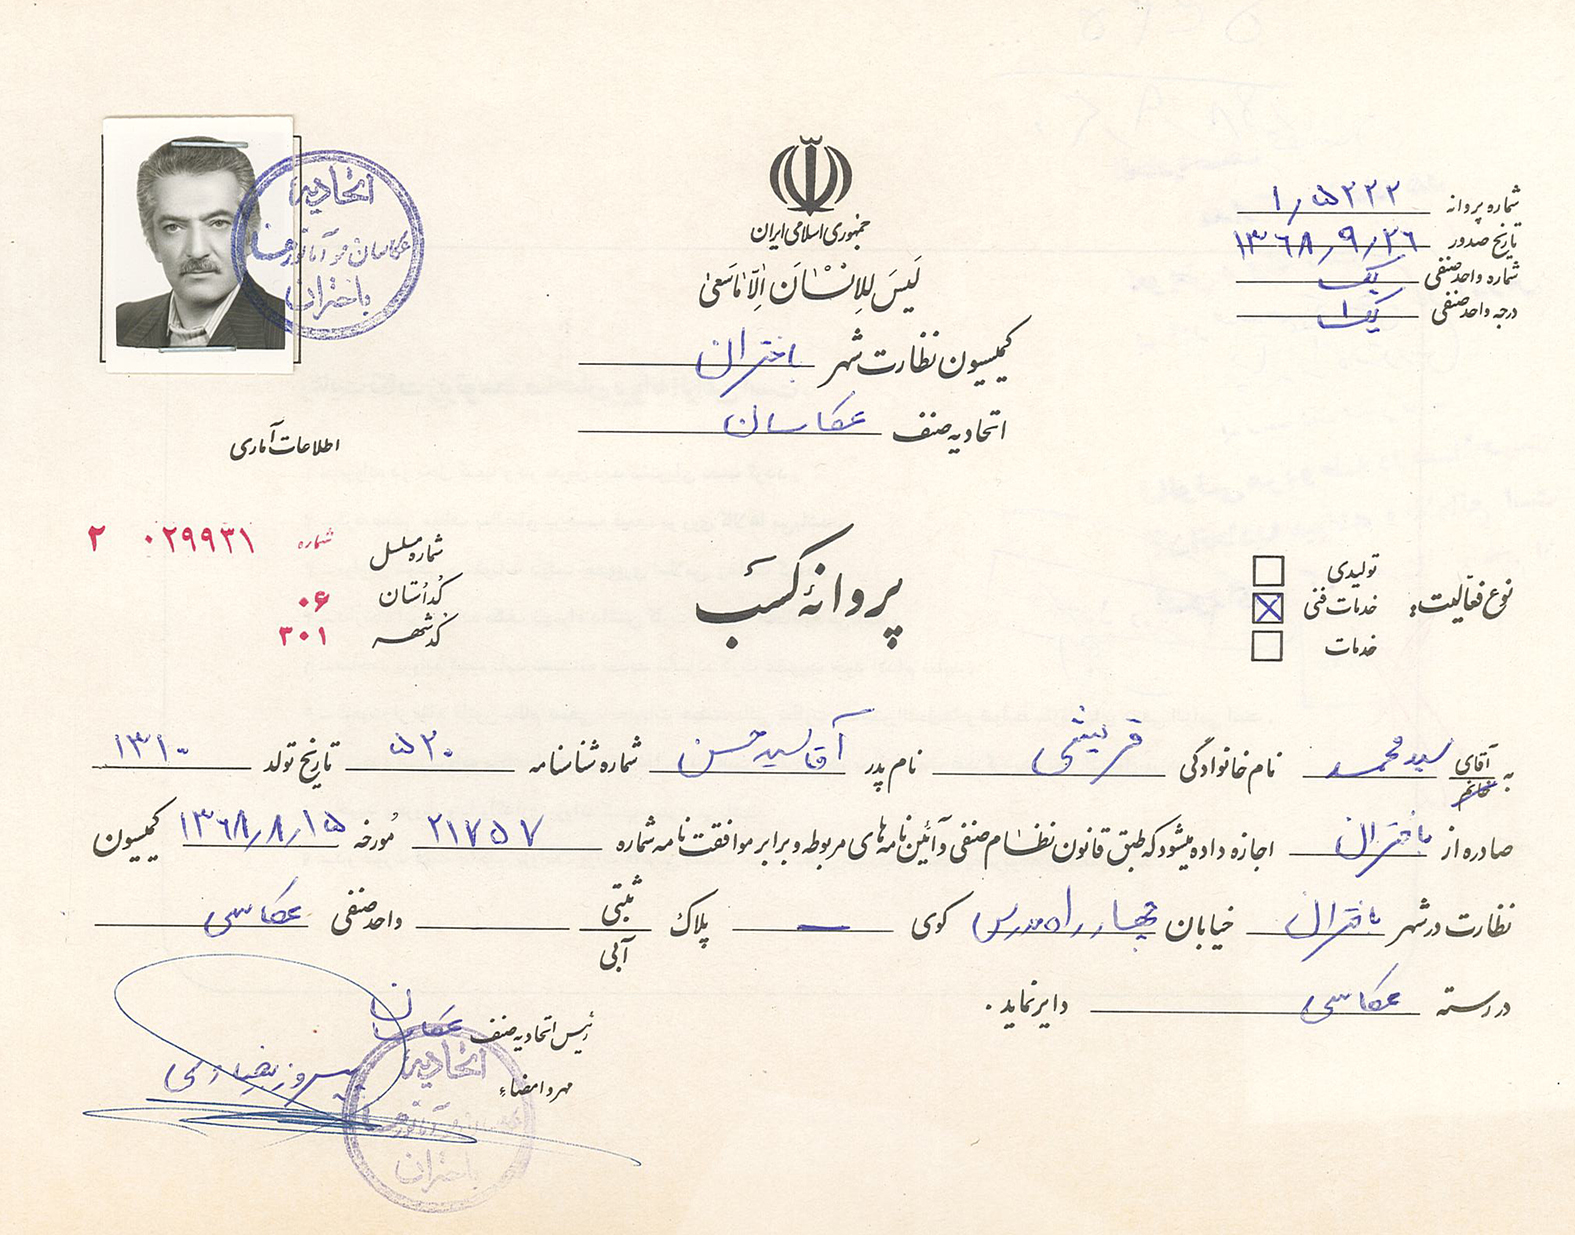 جمهوری اسلامی ایران
لَیسَ لِلاِنْسٰانَ اِلّاٰ مٰا سَعیٰ
کمیسیون نظارت شهر باختران
اتحادیه صنف عکاسان
شماره پروانه ۱٫۵۲۲۲
تاریخ صدور ۱۳۶۸٫۹٫۲۶
شماره واحد صنفی یک
درجه واحد صنفی یک ۱
اتحادیه
عکاسان
باختران
اطلاعات آماری
شماره مسلسل شماره ۰۲۹۹۳۱ ۲
کد استان ۰۶
کد شهر ۳۰۱
پروانهٔ کسب
نوع فعالیت:
تولیدی
خدمات فنی
خدمات
به آقای خانم سید محمد نام خانوادگی قریشی نام پدر آقا سید حسن شماره شناسنامه ۵۲۰ تاریخ تولد ۱۳۱۰
صادره از باختران اجازه داده میشود که طبق قانون نظام صنفی و آئین نامه های مربوطه و برابر موافقت نامه شماره ۲۱۷۵۷ مورخه ۱۳۶۸٫۸٫۱۵ کمیسیون
نظارت در شهر باختران خیابان چهارراه مدرس کوی — پلاک ثبتی آبی واحد صنفی عکاسی
در رسته عکاسی دایر نماید.
رئیس اتحادیه صنف عکاسان
مهر و امضاء
اتحادیه
باختران